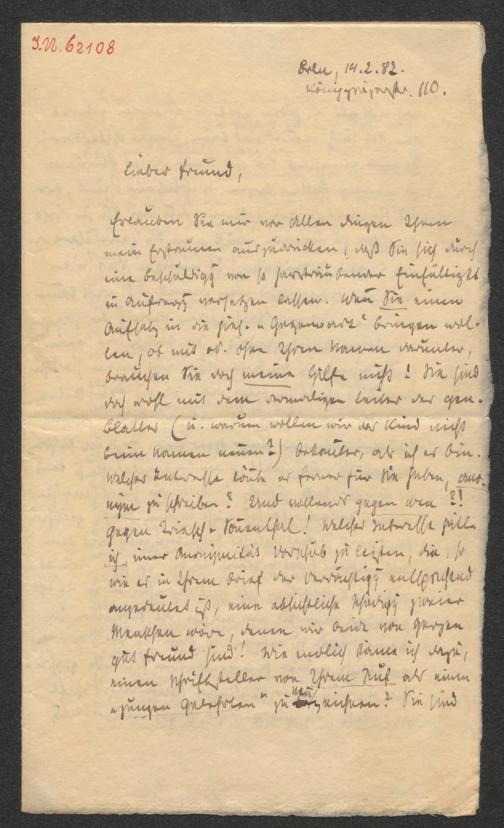 I.N. 62108
Brln, 14.2.82.
Königgrätzerstr. 110.
Lieber Freund,
Erlauben Sie mir vor allen Dingen Ihnen
mein Erstaunen auszudrücken, daß Sie sich durch
eine Beschuldigg von so haarsträubender Einfältigkt
in Aufregg versetzen lassen. Wenn Sie einen
Aufsatz in die „Gegenwart" bringen wol-
len, ob mit od. ohne Ihren Namen darunter,
brauchen Sie doch meine Hilfe nicht! Sie sind
doch wohl mit dem dermaligen Leiter der gen.
Blätter (u. warum wollen wir das Kind nicht
beim Namen nennen?) bekannter, als ich es bin.
Welches Interesse könnte es ferner für Sie haben, ano-
nym zu schreiben? Und vollends gegen wen?!
Gegen Triesch u. Rosenthal! Welches Interesse hätte
ich, einer Anonymität Vorschub zu leisten, die, so
wie es in Ihrem Brief der Verdächtigg entsprechend
angedeutet ist, eine absichtliche Schädigg zweier
Menschen wäre, denen wir beide von Herzen
gut Freund sind! Wie endlich käme ich dazu,
einen Schriftsteller von Ihrem Ruf als einen
„jungen Gelehrten" zu bezeichnen? Sie sind